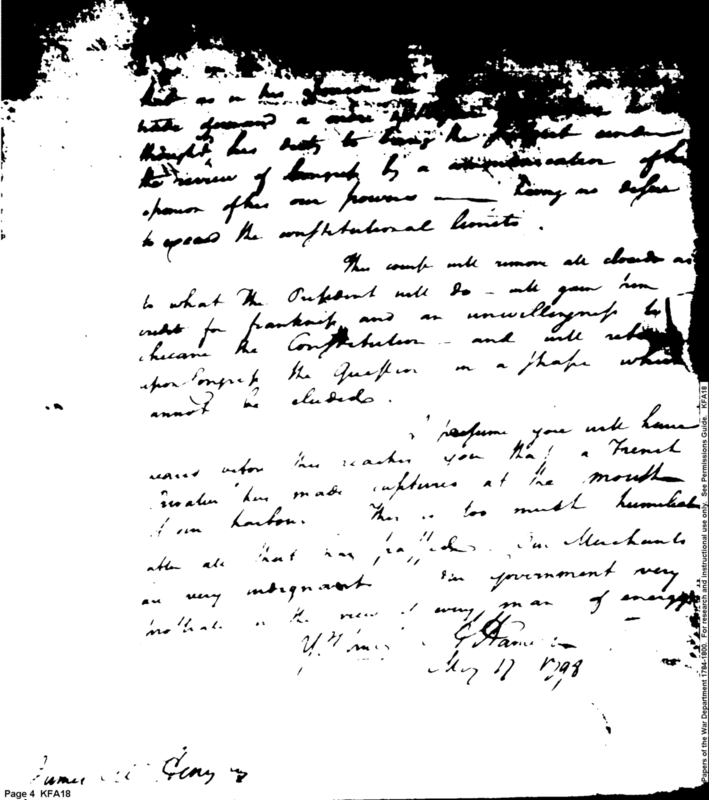 but as in his opinion
made forward a more
thought his duty to bring the subject under
the review of Congress by a communication of his
opinion of his own powers — having no desire
to exceed the constitutional limits.
This course will remove all clouds as
to what The President will do – will gain him
credit for frankness and an unwillingness to
chicane the Constitution – and will return
upon Congress the Question in a shape which
annot be eluded.
I presume you will have
before this reaches you that a French
Privateer has made captures at the mouth
of our harbour. This is too much humiliat
after all that has passed. Our Merchants
are very indignant Our government very
prostrate in the view of every man of energy
Yrs truly
May 17 1798
James Mc Henry
Page 4 KFA18
Papers of the War Department 1784-1800. For research and instructional use only. See Permissions Guide. KFA18